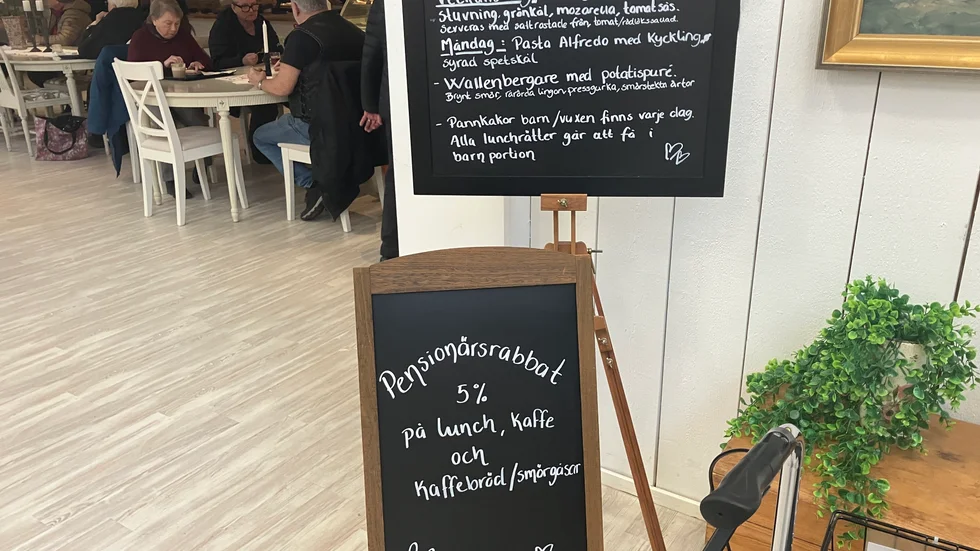 stuvning, grönkål, mozarella, tomatsås.
Serveras med saltrostade frön, tomat/rödlökssallad.
Måndag: Pasta Alfredo med Kyckling,
syrad spetskål
- Wallenbergare med potatispuré.
Brynt smör, rårörda lingon, pressgurka, smörslektn ärtor
- Pannkakor barn/vuxen finns varje dag.
Alla lunchrätter går att få i
barn portion
Pensionärsrabbat
5%
på lunch, Kaffe
och
Kaffebröd/smörgåsar